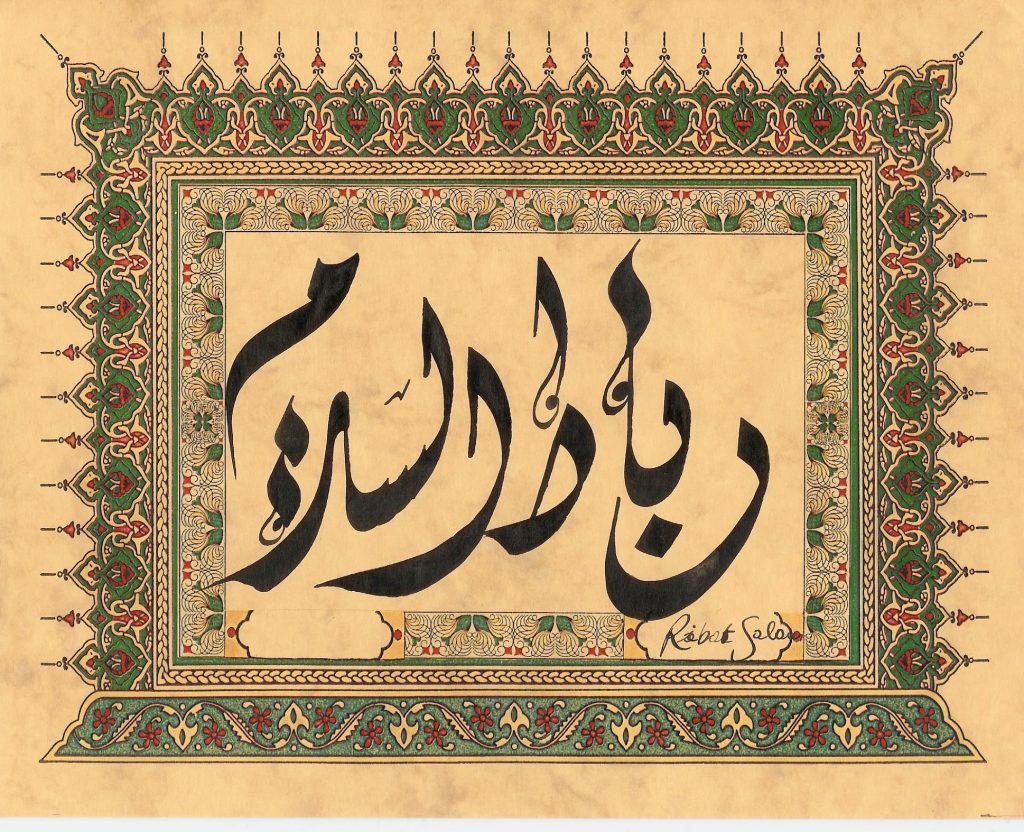 رباط السلام
Ribat Salam